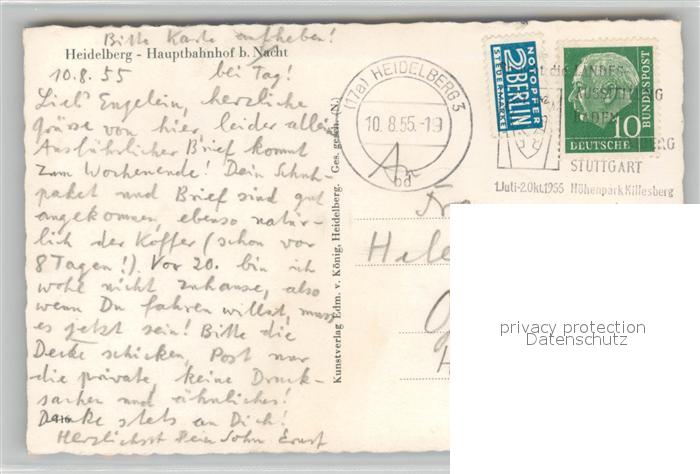 Bitte Karte aufheben!
Heidelberg - Hauptbahnhof b. Nacht
10.8.55 bei Tag!
Lieb' Engelein, herzliche
Grüsse von hier, leider allein
Ausführlicher Brief kommt
zum Wochenende! Dein Schuh-
paket und Brief sind gut
angekommen, ebenso natür-
lich der Koffer (schon vor
8 Tagen!). Vor 20. bin ich
wohl nicht zuhause, also
wenn Du fahren willst, muss
es jetzt sein! Bitte die
Decke schicken, Post nur
die private, keine Druck-
sachen und ähnliches!
Denke stets an Dich!
Herzlichst Dein Sohn Ernst
Kunstverlag Edm. v. König, Heidelberg. (Ges. gesch. (N)
(17a) HEIDELBERG 3
10.8.55.-19
bd
NOTOPFER
2 BERLIN
STEUERMARKE
LANDES
AUSSTELLUNG
STUTTGART
1.Juli-2.Okt.1955 Höhenpark Killesberg
DEUTSCHE BUNDESPOST
10
Fr
Hele
H
privacy protection
Datenschutz